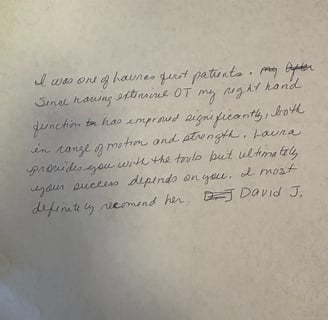 I was one of Lauras first patients. my After
Since having extensive OT my right hand
function to has improved significantly, both
in range of motion and strength. Laura
provides you with the tools but ultimately
your success depends on you. I most
definitely recomend her. David J.